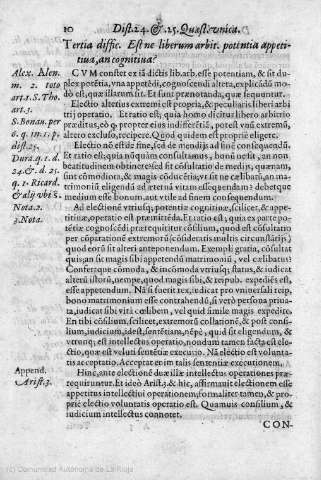 10 Dist. 24. & 25. Quæst. vnica.
Tertia diffic. Est ne liberum arbit. potentia appeti-
tiua, an cognitiua?
Alex. Alen.
m. 2. toto
art. 1. S. Tho.
art. 1.
S. Bonan. per
6. q. in 1. p.
dist. 25.
Dura. q. 1. d.
24. & d. 25
q. 1. Ricard.
& alij vbi S.
Nota. 2.
3. Nota.
CVM constet ex iā dictis lib. arb. esse potentiam, & sit du-
plex potētia, vna appetēdi, cognoscendi altera, explicādū mo-
dò est, quæ illarum sit. Et sunt prænotanda, quæ sequuntur.
Electio alterius extremi est propria, & peculiaris liberi arbi
trij operatio. Et ratio est; quia homo dicitur libero arbitrio
præditus, eò q; propter eius indifferētiā, potest vnū extremū,
altero excluso, recipere. Quod quidem est propriè eligere.
Electio nō est de fine, sed de medijs ad finē consequendū.
Et ratio est; quia nūquam consultamus, bonū ne sit, an non
beatitudinem obtinere: sed fit cōsultatio de medijs, quænam,
sint cōmodiora, & magis cōducētia; vt sit ne cælibatū, an ma-
trimoniū eligendū ad æternā vitam assequendam? debetque
medium esse bonum, aut vtile ad finem consequendum.
Ad electionē vtriusq; potentiæ cognitiuæ, scilicet, & appe-
titiuæ, operatio est præmittēda. Et ratio est; quia ex parte po-
tētiæ cognoscēdi prærequiritur cōsilium, quod est cōsultatio
per cōparationē extremorū (cōsideratis multis circumstātijs)
quod eorū sit alteri anteponendum. Exempli gratia, cōsultat
quis; an sit magis sibi appetendū matrimoniū, vel cælibatus?
Confertque cōmoda, & incōmoda vtriusq; status, & iudicat
alterū illorū, nempe, quod magis sibi, & reipub. expedies est,
esse appetendum. Nā si fuerit rex, iudicat pro vniuersali reip.
bono matrimonium esse contrahendū, si verò persona priua-
ta, iudicat sibi viti cælibem, vel quid simile magis expedire.
En tibi cōsiliū, scilicet, extremorū collationē, & post consi-
lium, iudiciūm, idest, sentētiam, nēpè, quid sit eligendum, &
vtrunq; est intellectus operatio, nondum tamen facta est ele-
ctio, quæ est veluti sentētiæ executio. Nā electio est volunta-
tis acceptatio. Acceptat enim talis sententiæ executionem.
Append.
Arist. 3.
Hinc, ante electionē duæ illæ intellectus operationes præ-
requiruntur. Et ideò Arist. 3. & hic, affirmauit electionem esse
appetitus intellectiui operationem, formaliter tamen, & pro-
priè electio voluntatis operatio est. Quamuis consilium, &
iudicium intellectus connotet.
CON-
(C) Comunidad Autónoma de La Rioja